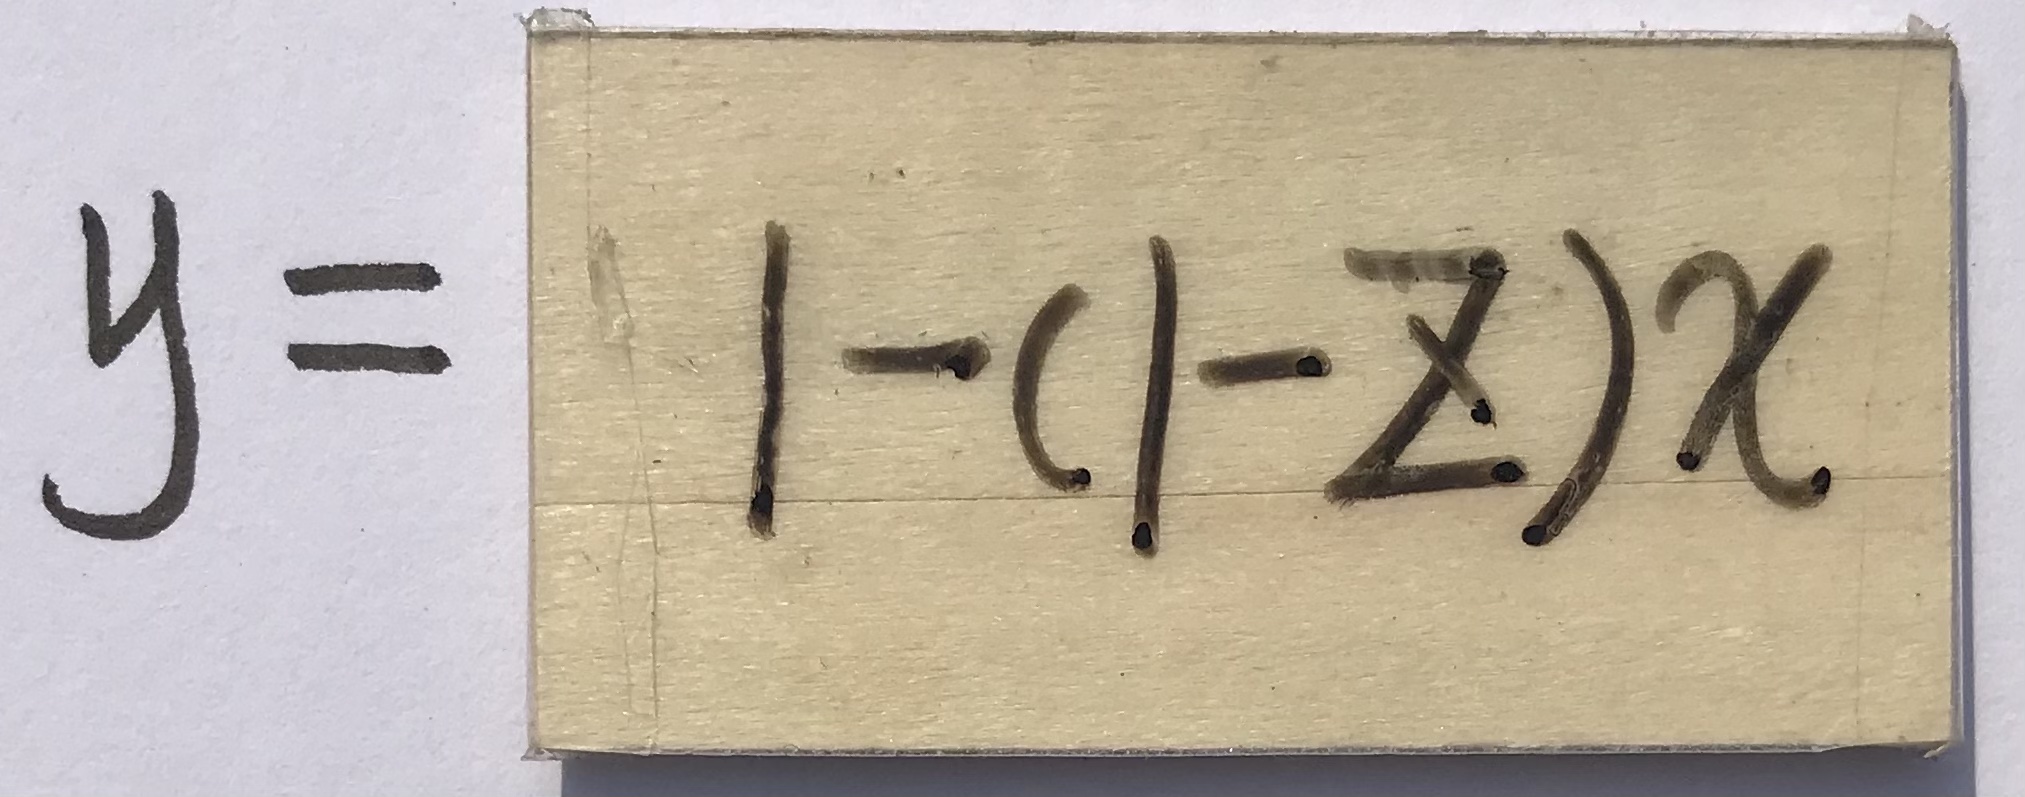 y = 1-(1-z)x